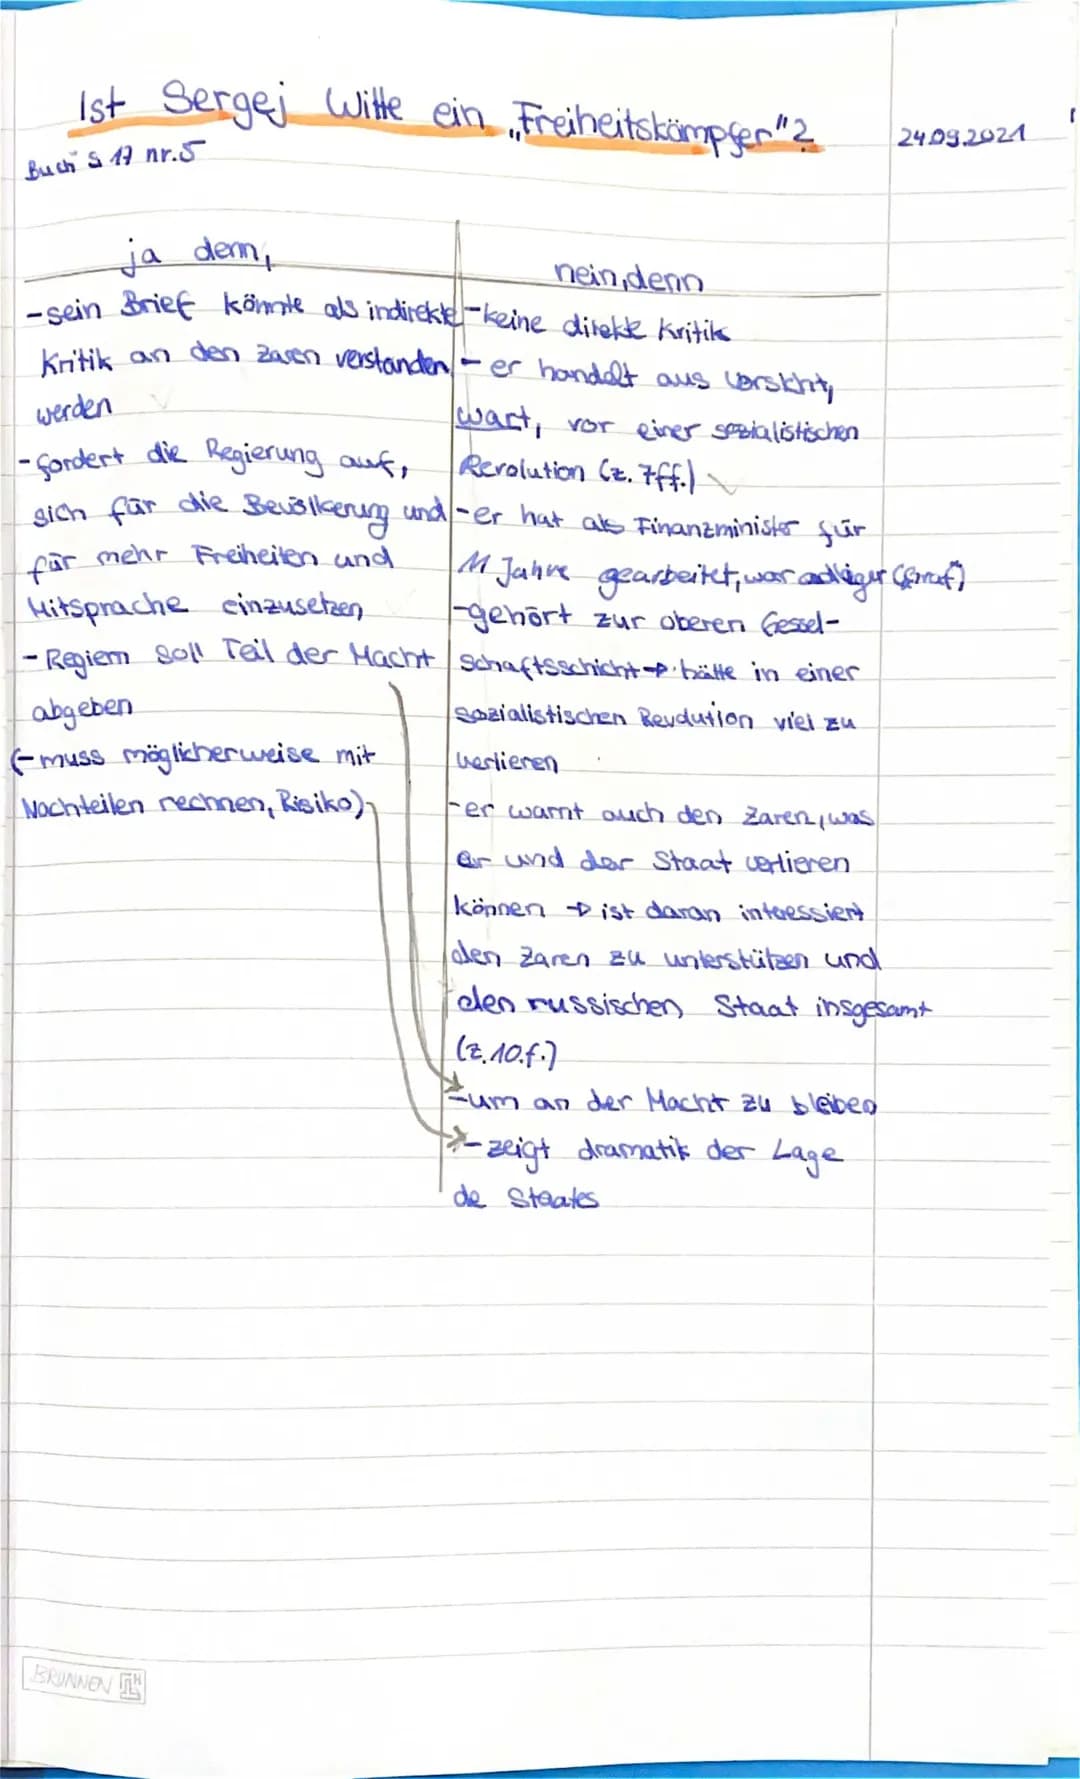 Ist Sergej Witte ein „Freiheitskämpfer"?
24.09.2021
Buch S 17 nr.5
ja denn,
-sein Brief könnte als indirekte
Kritik an den Zaren verstanden
werden
-fordert die Regierung auf,
sich für die Bevölkerung und
für mehr Freiheiten und
Mitsprache einzusetzen
- Regiern soll Teil der Macht
abgeben
(-muss möglicherweise mit
Nachteilen rechnen, Risiko)
nein, denn
-keine direkte Kritik
- er handelt aus Vorsicht,
wart, vor einer sozialistischen
Revolution (z. 7ff.)
-er hat als Finanzminister für
11 Jahre gearbeitet, war adliger
-gehört zur oberen Gesel-
schaftsschicht → hätte in einer
sozialistischen Revolution viel zu
verlieren
-er warnt auch den Zaren, was
er und der Staat verlieren
können → ist daran interessiert
den Zaren zu unterstützen und
den russischen Staat insgesamt
(z.10.f.)
-um an der Macht zu bleiben
- zeigt dramatik der Lage
de Staates
BRUNNEN